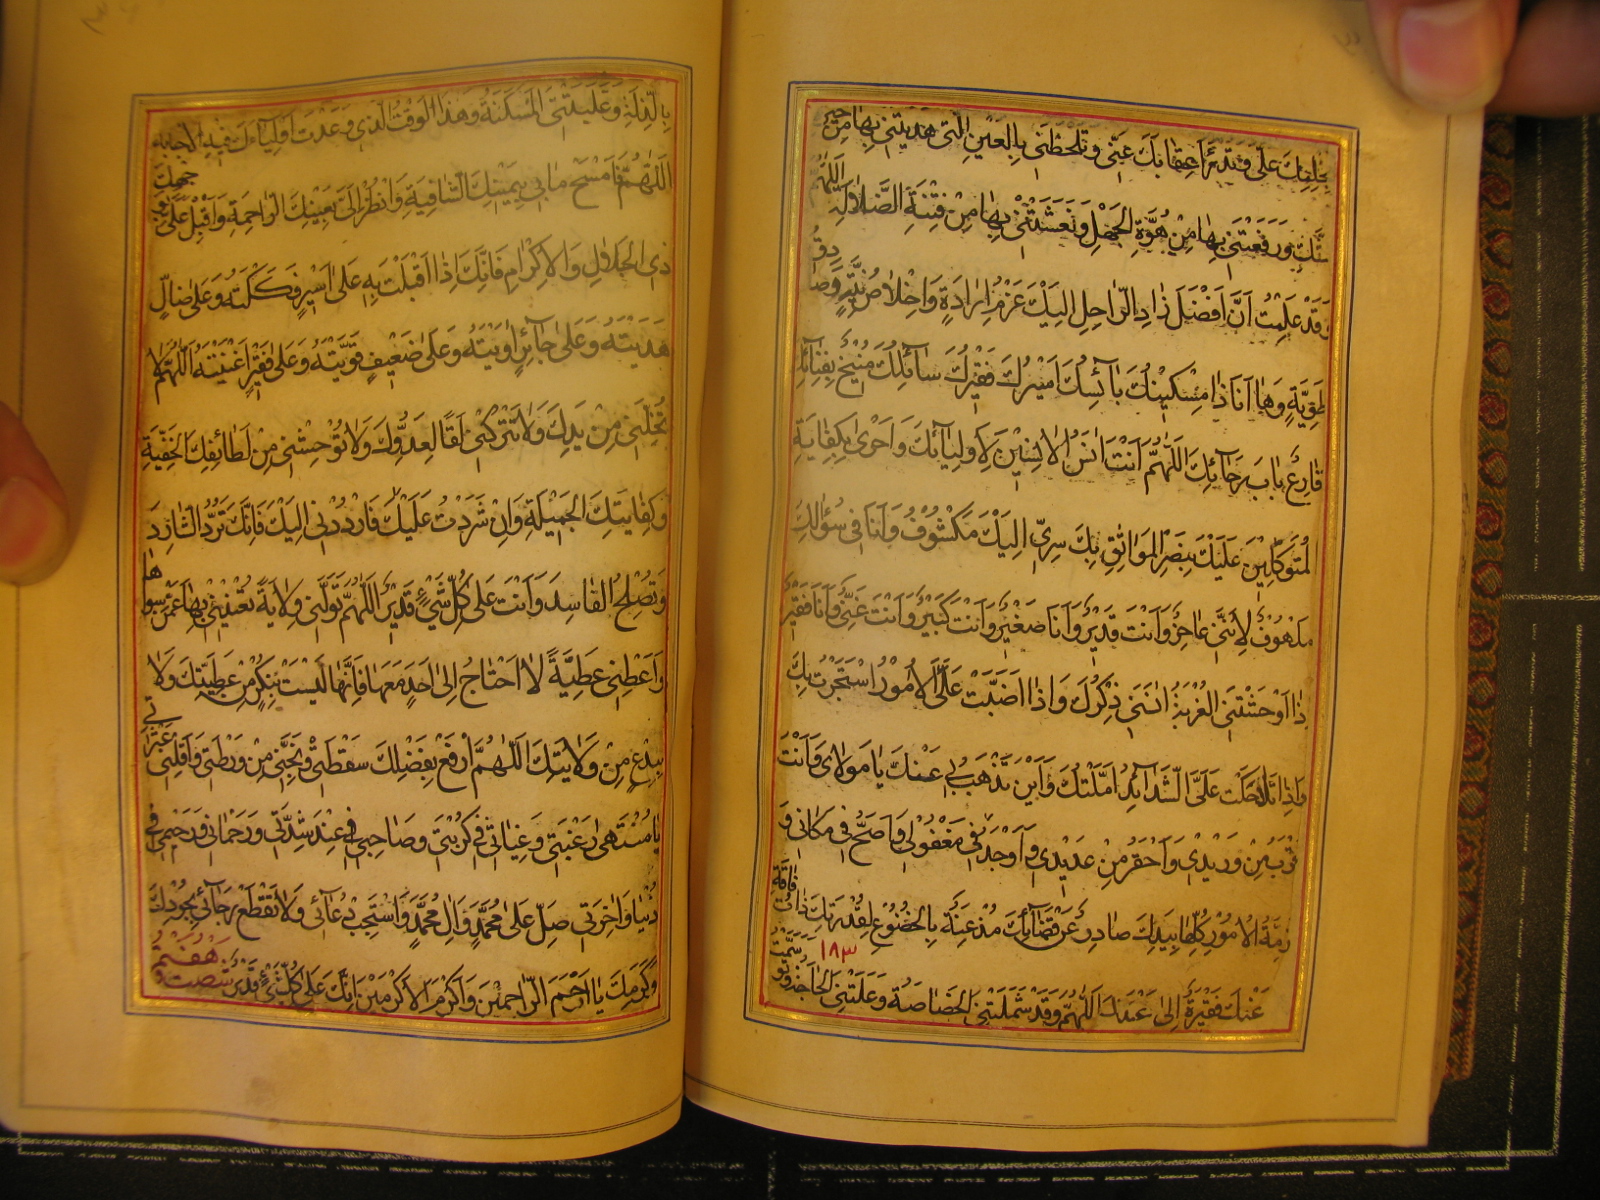 بخلقك على وتدرأ عقابك عنى وتلحظنى بالعين التى هديتنى بها من حيرة
الشك ورفعتنى بها من هوة الجهل ونعشتنى بها من فتنة الضلالة اللهم
وقد علمت ان افضل زاد الراحل اليك عزم ارادة واخلاص نية وصادق
طوية وها انا ذا مسكينك بائسك اسيرك فقيرك سائلك منيخ بفنائك
قارع باب رجائك اللهم انت انس الانسين لاوليائك واحرى بكفاية
المتوكلين عليك بنصر المواثق بك سرى اليك مكشوف وانا فى سؤالك
ملهوف لاننى عاجز وانت قدير وانا صغير وانت كبير وانت غنى وانا فقير
اذا اوحشتنى الغربة انسنى ذكرك واذا اضبت على الامور استجرت بك
واذا تلاحكت على الشدائد املتك واين تذهب بى عنك يا مولاى وانت
اقرب من وريدى واحقر من عديدى واوجد فى معقولى واصح فى مكانى و
ازمة الامور كلها بيدك صادر عن قضائك مذعنة بالخضوع لقدرتك ذات فاقة
١٨٣
عنك فقيرة الى عبدك اللهم وقد شملتنى الخصاصة وعلتنى الحاجة وتوسمت
بالذلة وغلبتنى المسكنة وهذا الوقت الذى وعدت اولياءك فيه الاجابة
اللهم فامسح مابى بيمينك الشافية وانظر الى بعينك الراحمة واقبل على بوجهك
ذى الجلال والاكرام فانك اذا اقبلت به على اسير فككته وعلى ضال
هديته وعلى حائر اويته وعلى ضعيف قويته وعلى فقير اغنيته اللهم لا
تخلنى من يدك ولا تتركنى لقا لعدوك ولا توحشنى من لطائفك الخفية
وكفايتك الجميلة وان شردت عليك فارددنى اليك فانك ترد الشارد
وتصلح الفاسد وانت على كل شىء قدير اللهم تولنى ولاية تغنينى بها عمن سواها
واعطنى عطية لا احتاج الى احد معها فانها ليست بنكر من عطيتك ولا
ببدع من ولايتك اللهم ارفع بفضلك سقطتى ونجنى من ورطتى واقلنى عثرتى
يا منتهى رغبتى وغياثى فى كربتى وصاحبى فى عند شدتى ورحمانى ورحيمى فى
دنياى واخرتى صل على محمد وال محمد واستجب دعائى ولا تقطع رجائى بجودك
وكرمك يا ارحم الراحمين واكرم الاكرمين انك على كل شىء قدير شصت و هفتم